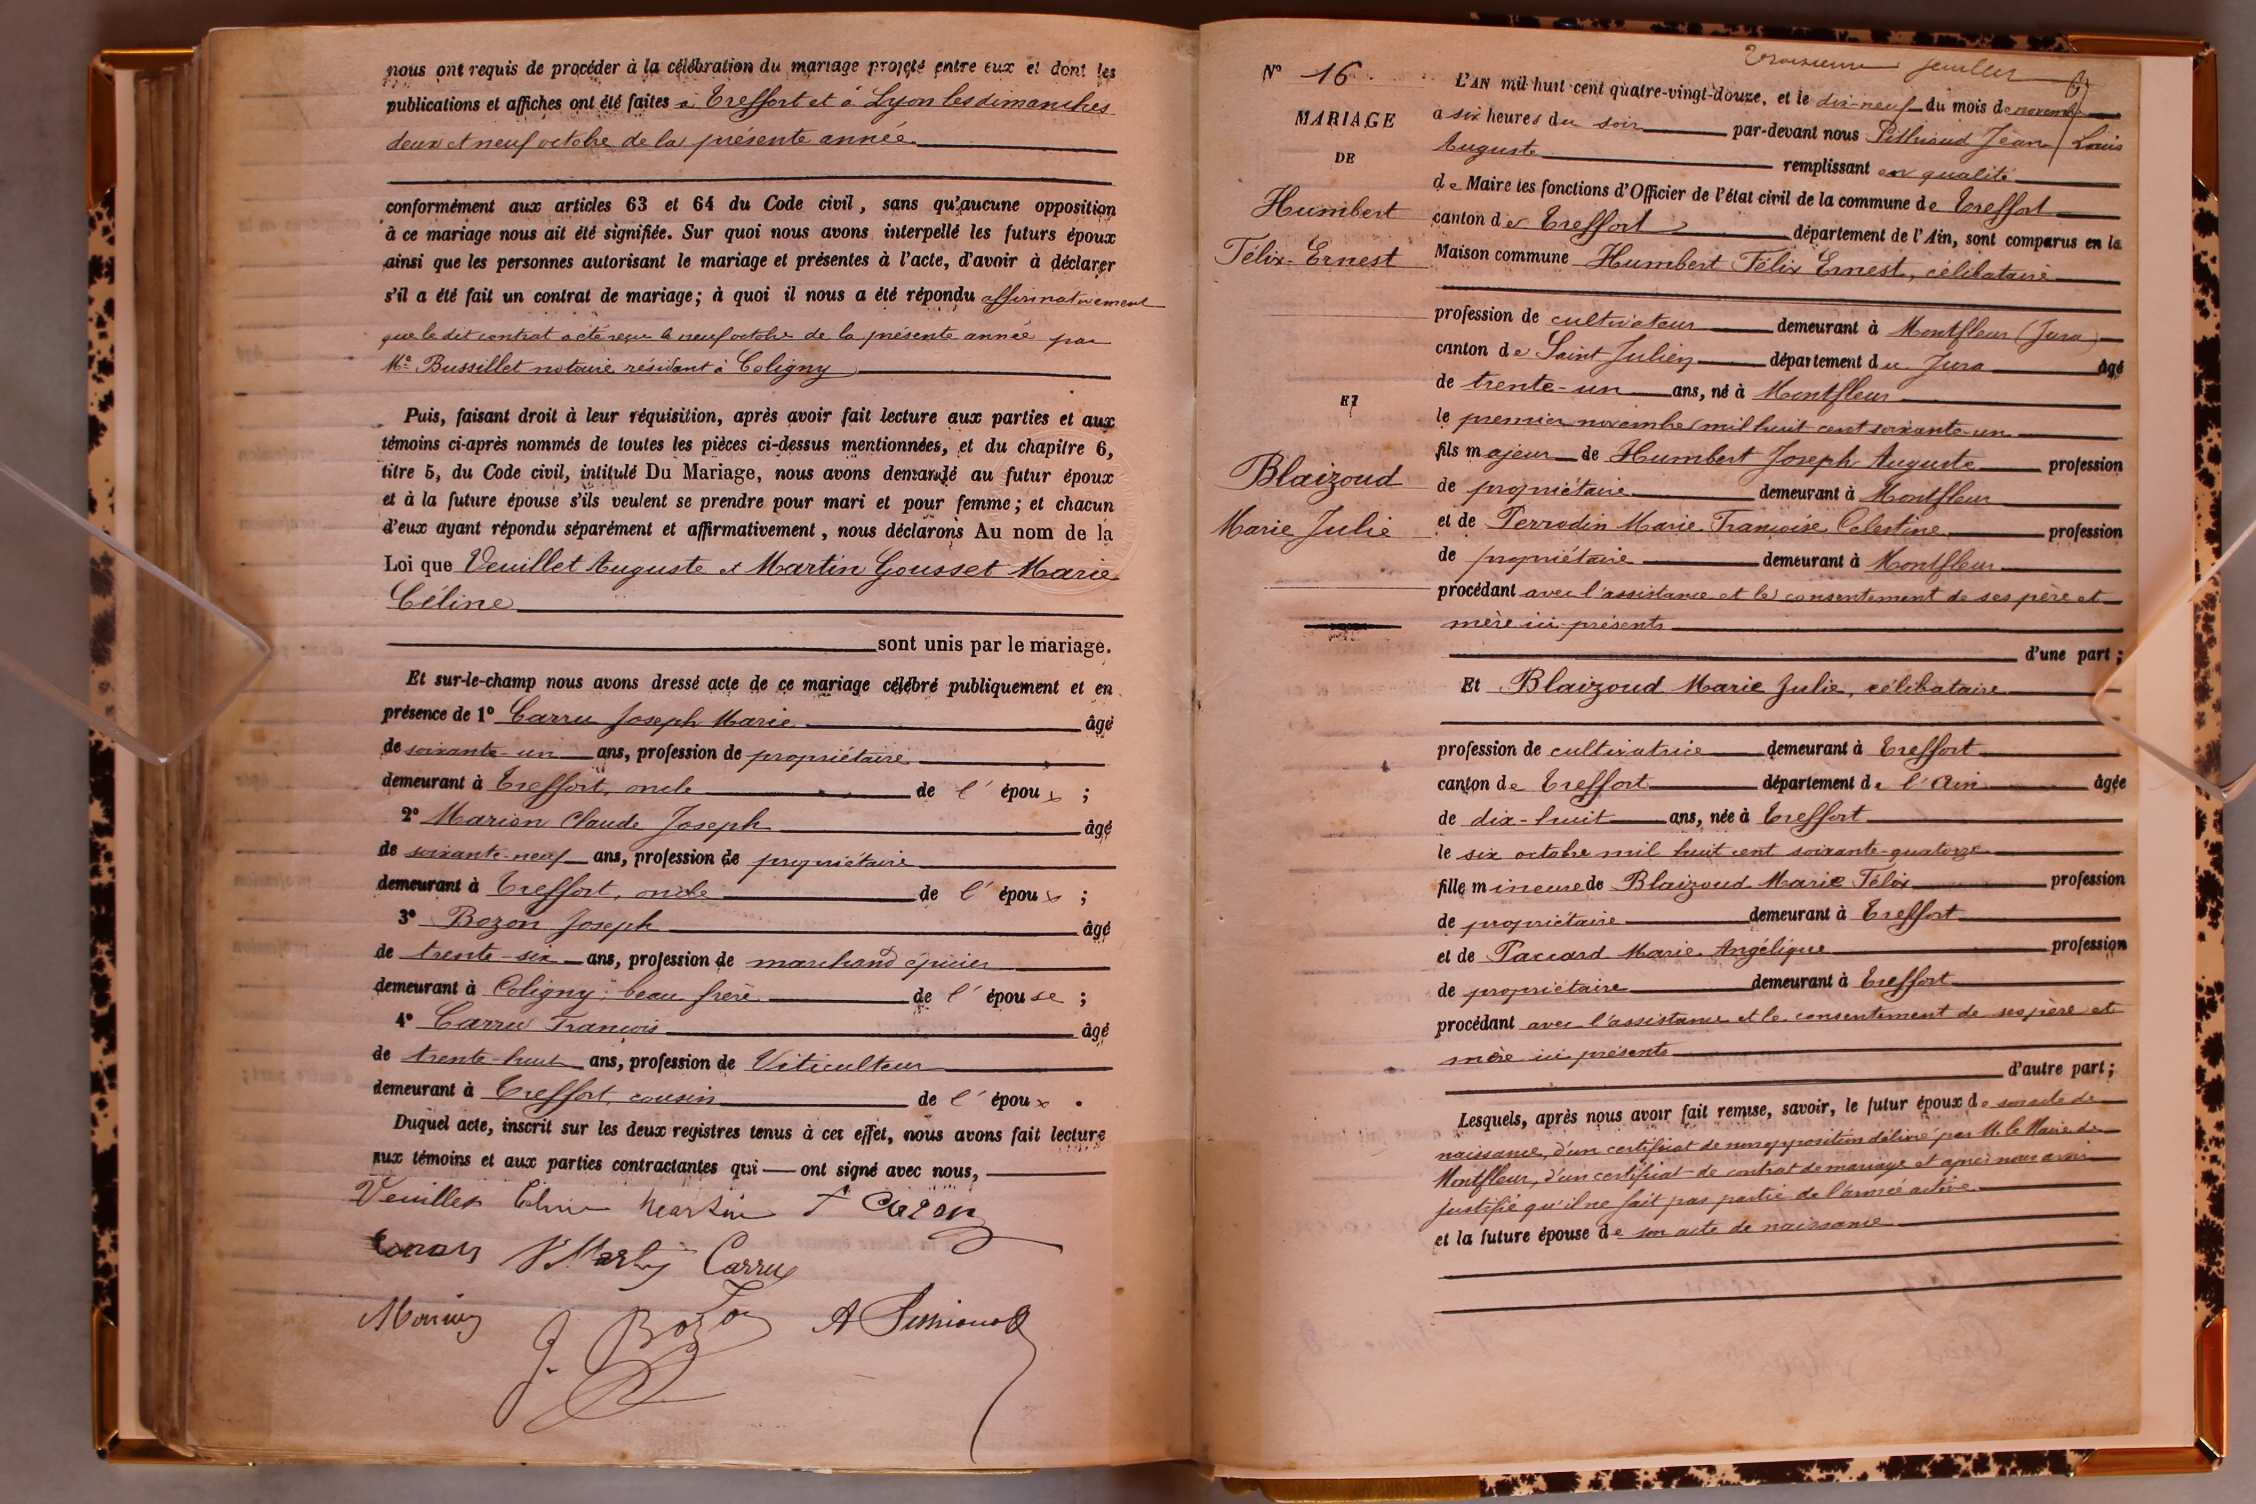 nous ont requis de procéder à la célébration du mariage projeté entre eux et dont les
publications et affiches ont été faites à Treffort et à Lyon les dimanches
deux et neuf octobre de la présente année.
conformément aux articles 63 et 64 du Code civil, sans qu'aucune opposition
à ce mariage nous ait été signifiée. Sur quoi nous avons interpellé les futurs époux
ainsi que les personnes autorisant le mariage et présentes à l'acte, d'avoir à déclarer
s'il a été fait un contrat de mariage; à quoi il nous a été répondu affirmativement
que le dit contrat a été reçu le neuf octobre de la présente année par
Me Bussillet notaire résidant à Coligny
Puis, faisant droit à leur réquisition, après avoir fait lecture aux parties et aux
témoins ci-après nommés de toutes les pièces ci-dessus mentionnées, et du chapitre 6,
titre 5, du Code civil, intitulé Du Mariage, nous avons demandé au futur époux
et à la future épouse s'ils veulent se prendre pour mari et pour femme; et chacun
d'eux ayant répondu séparément et affirmativement, nous déclarons Au nom de la
Loi que Veuillet Auguste et Martin Gousset Marie
Céline
sont unis par le mariage.
Et sur-le-champ nous avons dressé acte de ce mariage célébré publiquement et en
présence de 1° Carru Joseph Marie âgé
de soixante-un ans, profession de propriétaire
demeurant à Treffort, oncle de l'époux ;
2° Marion Claude Joseph âgé
de soixante-neuf ans, profession de propriétaire
demeurant à Treffort, oncle de l'époux ;
3° Bozon Joseph âgé
de trente-six ans, profession de marchand épicier
demeurant à Coligny, beau frère de l'épouse ;
4° Carru François âgé
de trente-huit ans, profession de Viticulteur
demeurant à Treffort, cousin de l'époux .
Duquel acte, inscrit sur les deux registres tenus à cet effet, nous avons fait lecture
aux témoins et aux parties contractantes qui ont signé avec nous,
Veuillet Céline Martin
Martin Carru
J. Bozon A
troisième feuillet
N° 16
MARIAGE
DE
Humbert
Félix-Ernest
ET
Blaizoud
Marie Julie
L'AN mil huit cent quatre-vingt-douze, et le dix-neuf du mois de novembre
à six heures du soir par-devant nous Pithioud Jean Louis
Auguste remplissant en qualité
de Maire les fonctions d'Officier de l'état civil de la commune de Treffort
canton de Treffort département de l'Ain, sont comparus en la
Maison commune Humbert Félix Ernest, célibataire
profession de cultivateur demeurant à Montfleur (Jura)
canton de Saint Julien département du Jura âgé
de trente-un ans, né à Montfleur
le premier novembre mil huit cent soixante-un
fils majeur de Humbert Joseph Auguste profession
de propriétaire demeurant à Montfleur
et de Perrodin Marie Françoise Célestine profession
de propriétaire demeurant à Montfleur
procédant avec l'assistance et le consentement de ses père et
mère ici présents
d'une part ;
Et Blaizoud Marie Julie, célibataire
profession de cultivatrice demeurant à Treffort
canton de Treffort département de l'Ain âgée
de dix-huit ans, née à Treffort
le six octobre mil huit cent soixante-quatorze
fille mineure de Blaizoud Marie Félix profession
de propriétaire demeurant à Treffort
et de Paccard Marie Angélique profession
de propriétaire demeurant à Treffort
procédant avec l'assistance et le consentement de ses père et
mère ici présents
d'autre part ;
Lesquels, après nous avoir fait remise, savoir, le futur époux de son acte de
naissance, d'un certificat de non opposition délivré par M. le Maire de
Montfleur, d'un certificat de contrat de mariage et après nous avoir
justifié qu'il ne fait pas partie de l'armée active
et la future épouse de son acte de naissance